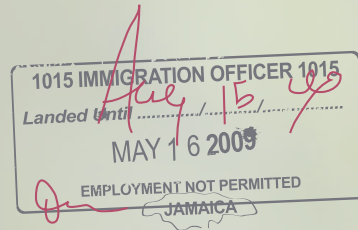 1015 IMMIGRATION OFFICER 1015
Landed Until July / 15 / 09
MAY 16 2009
EMPLOYMENT NOT PERMITTED
JAMAICA